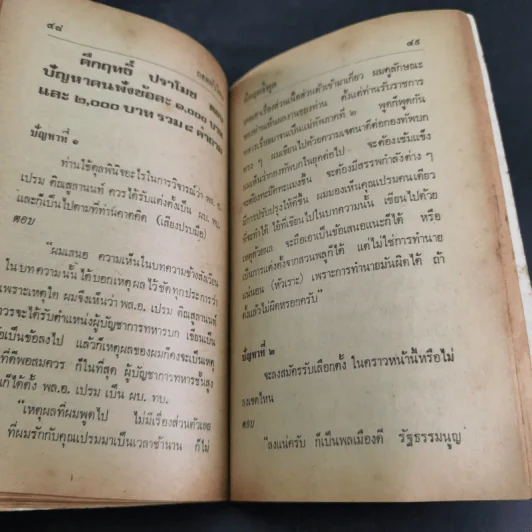 ๔๘
คึกฤทธิ์ ปราโมช ตอบ
ปัญหาคนฟังข้อละ ๑,๐๐๐ บาท
และ ๒,๐๐๐ บาท รวม ๔ คำถาม
ปัญหาที่ ๑
ท่านใช้ดุลพินิจอะไรในการวิจารณ์ว่า พล.อ.
เปรม ติณสูลานนท์ ควรได้รับแต่งตั้งเป็น ผบ. ทบ.
และก็เป็นไปตามที่ท่านคาดคิด (เสียงปรบมือ)
ตอบ
"ผมเสนอ ความเห็นในบทความข้างสังเวียน
ในบทความนั้น ได้บอกเหตุผลไว้ชัดทุกประการว่า
เพราะเหตุใด ผมจึงเห็นว่า พล.อ. เปรม ติณสูลานนท์
ควรจะได้รับตำแหน่งผู้บัญชาการทหารบก เขียนเป็น
ข้อเป็นข้อลงไป แล้วก็เหตุผลของผมก็คงจะเป็นเหตุ
ที่ดีพอสมควร ก็ในที่สุด ผู้บัญชาการทหารชั้นสูง
ก็ได้ตั้ง พล.อ. เปรม เป็น ผบ. ทบ.
"เหตุผลที่ผมพูดไป ไม่มีเรื่องส่วนตัวเลย
ที่ผมรักกับคุณเปรมมาเป็นเวลาช้านาน ก็ไม่
๔๙
คึกฤทธิ์พูด
เคยเอาเรื่องส่วนตัวเข้ามาเกี่ยว ผมดูลักษณะ
ของท่านเห็นผลงานของท่าน ตั้งแต่ท่านรับราชการ
ทหารเรื่อยมาจนเป็นแม่ทัพภาคที่ ๒ พูดก็พูดกัน
ต่าง ๆ ผมเขียนไปด้วยความเจตนาดีต่อกองทัพบก
ผมเห็นว่ากองทัพบกในยุคต่อไป จะต้องเข้มแข็ง
จะต้องทะมัดทะแมงขึ้น จะต้องมีสรรพกำลังต่าง ๆ
มีการปรับปรุงให้ดีขึ้น ผมมองเห็นคุณเปรมคนเดียว
ที่จะทำได้ ไอ้ที่เขียนไปในบทความนั้น เขียนไปด้วย
เหตุด้วยผล จะถือเอาเป็นข้อเสนอแนะก็ได้ หรือ
เป็นการแต่งตั้งจากสวนพลูก็ได้ แต่ไม่ใช่การทำนาย
แน่นอน (หัวเราะ) เพราะการทำนายมันผิดได้ ถ้า
ตั้งแล้วไม่ผิดหรอกครับ"
ปัญหาที่ ๒
จะลงสมัครรับเลือกตั้ง ในคราวหน้านี้หรือไม่
ลงเขตไหน
ตอบ
"ลงแน่ครับ ก็เป็นพลเมืองดี รัฐธรรมนูญ